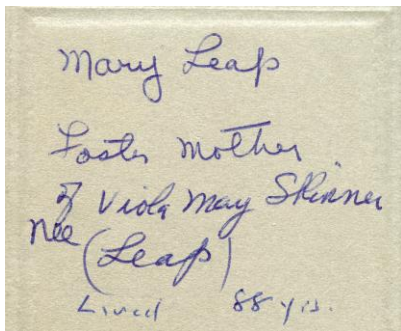 Mary Leap
Foster Mother
of Viola May Skinner
nee (Leap)
Lived 88 yrs.